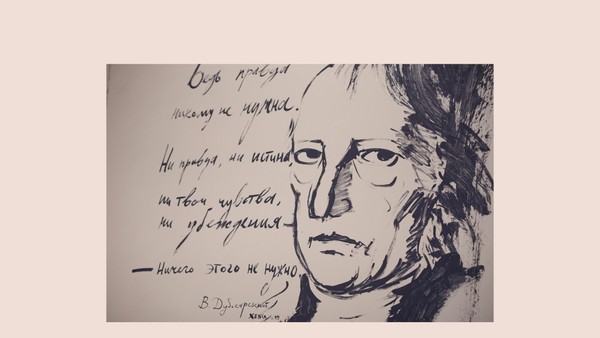 Ведь правда
никому не нужна.
Ни правда, ни истина,
ни твои чувства,
ни убеждения –
— Ничего этого не нужно.